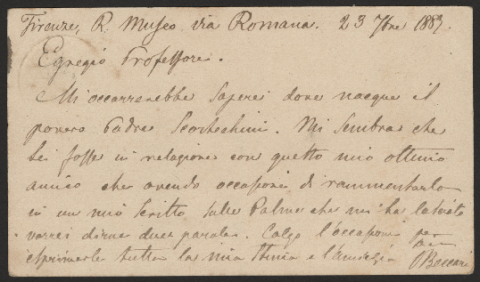 Firenze, R. Museo via Romana. 23 7bre 1887.
Egregio Professore.
Mi occorrerebbe sapere dove nacque il
povero Padre Scortechini. Mi sembra che
Lei fosse in relazione con questo mio ottimo
amico che avendo occasione di rammentarlo
in un mio scritto sulle Palme che mi ha lasciato
vorrei dirne due parole. Colgo l'occasione per
esprimerle tutta la mia stima e l'amicizia
O Beccari